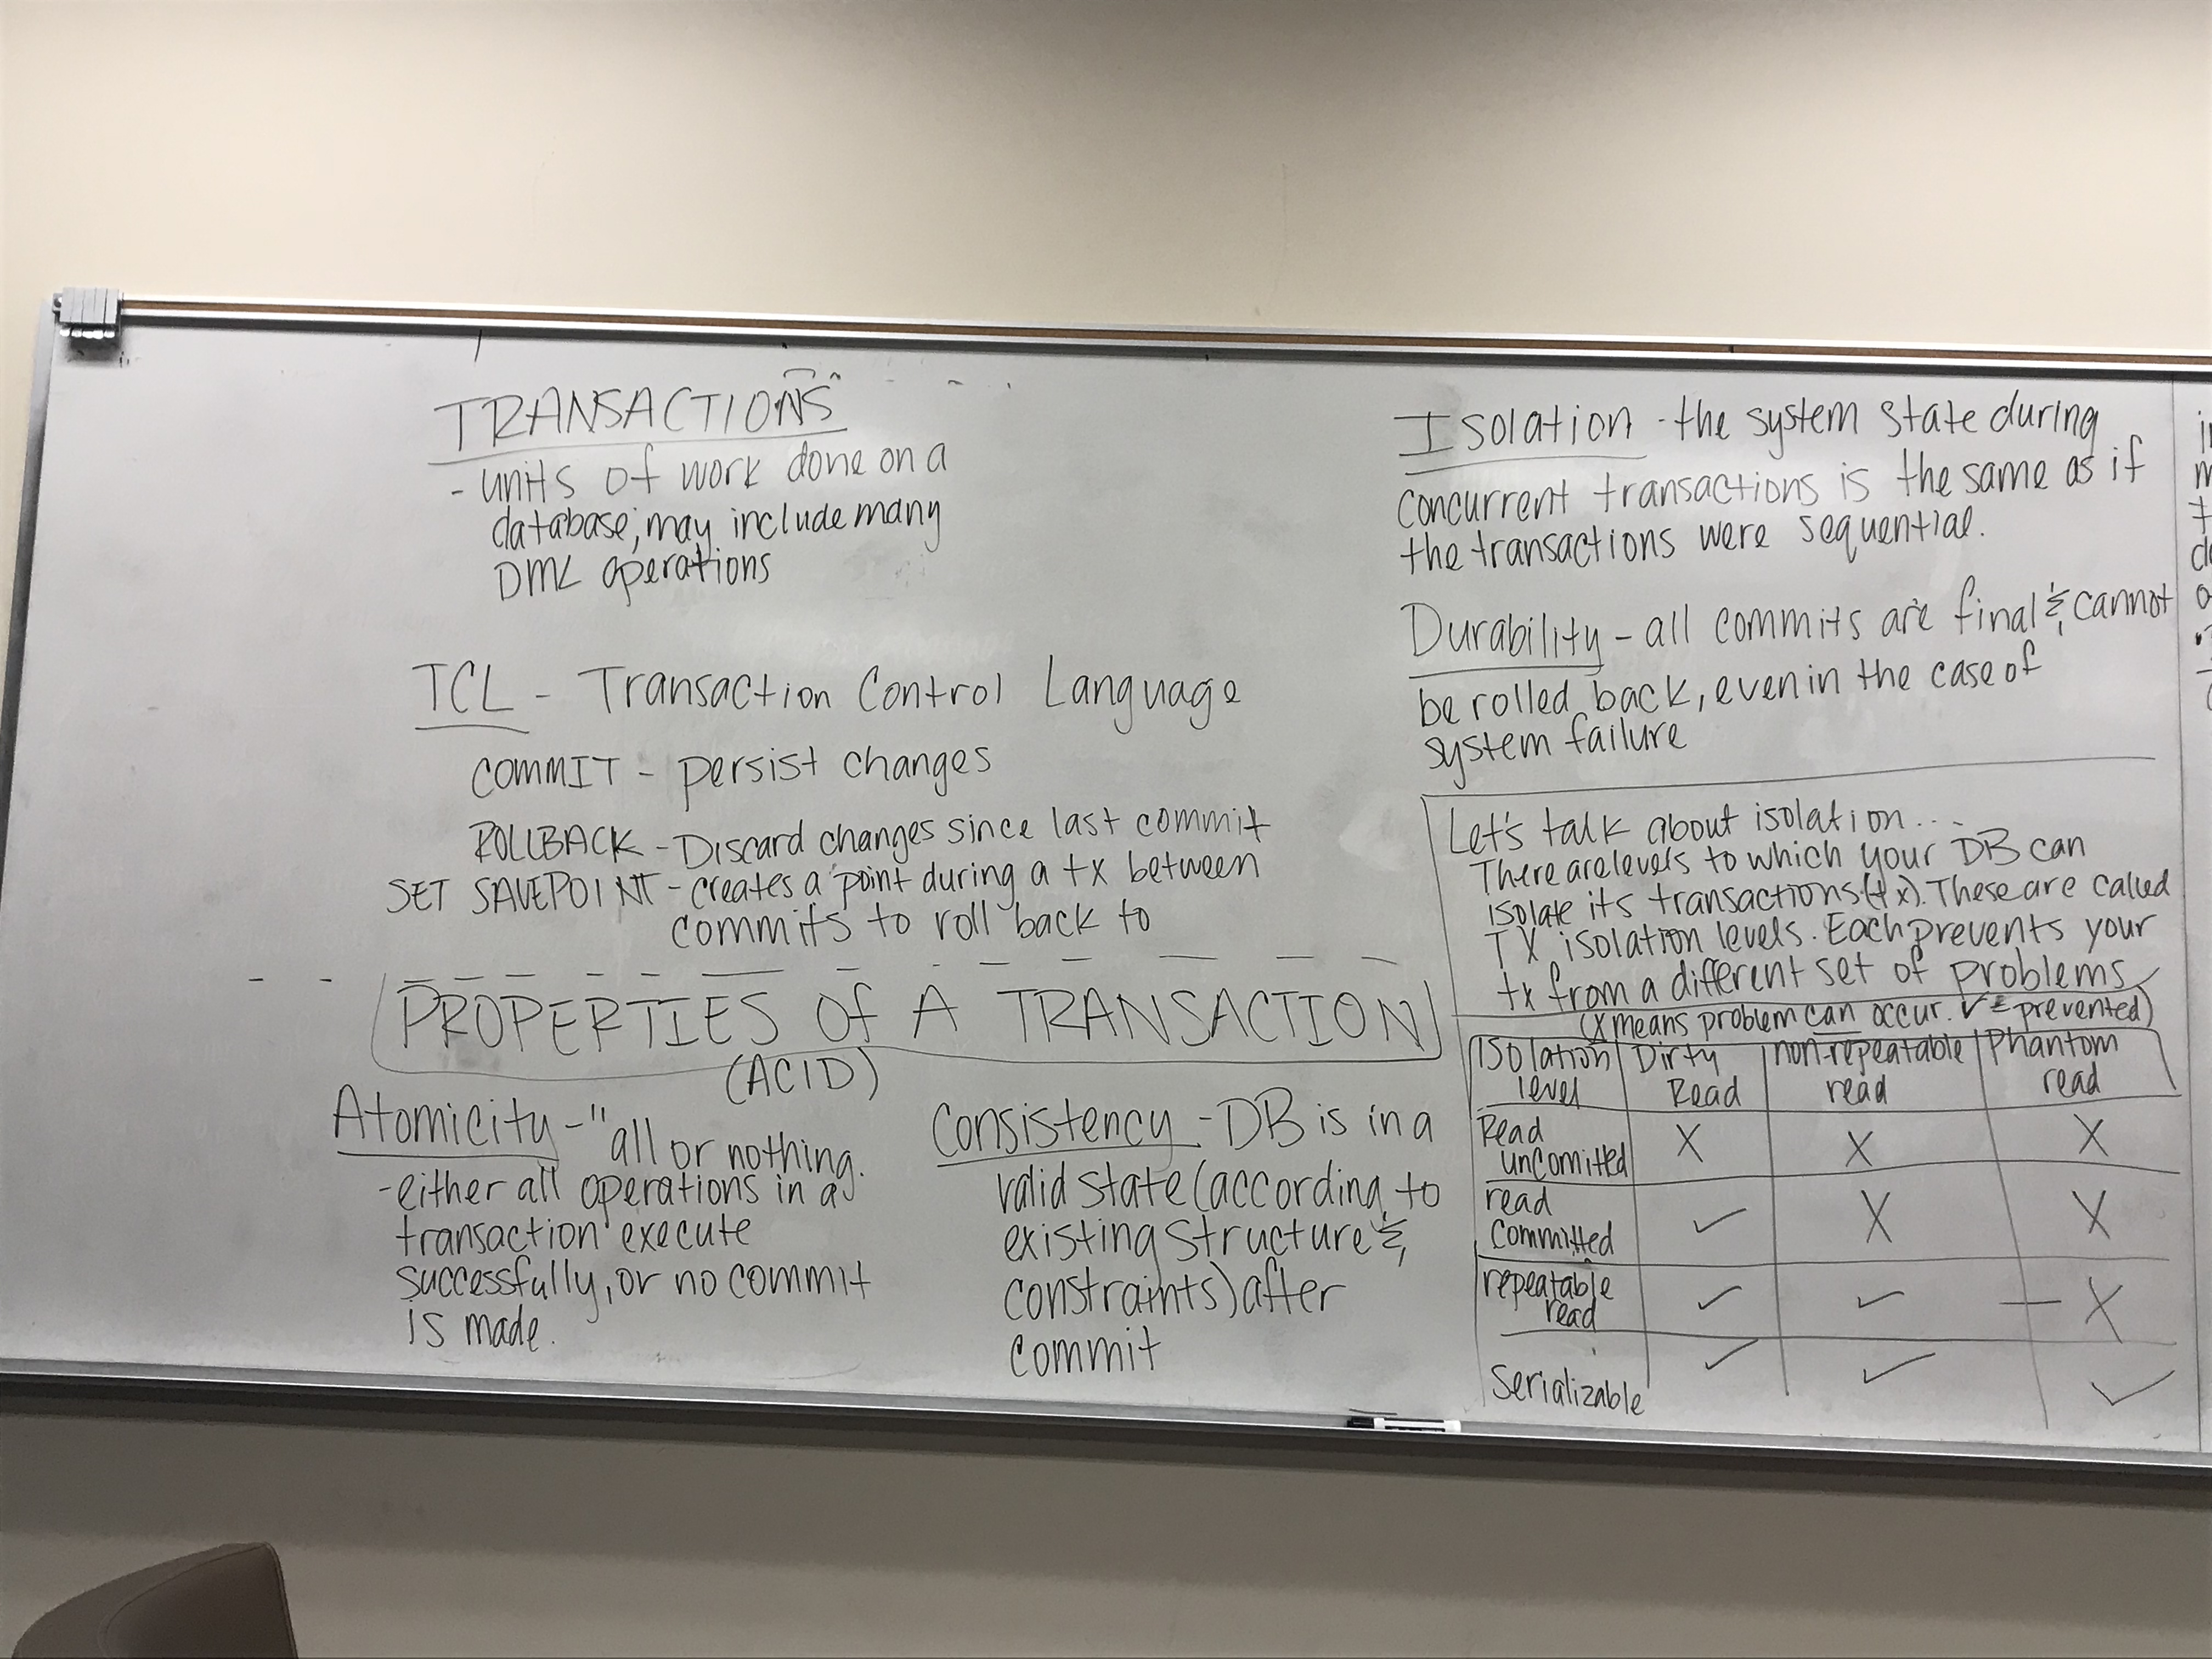 TRANSACTIONS
- units of work done on a
database; may include many
DML operations
TCL - Transaction Control Language
COMMIT - persist changes
ROLLBACK - Discard changes since last commit
SET SAVEPOINT - creates a point during a tx between
commits to roll back to
PROPERTIES Of A TRANSACTION
(ACID)
Atomicity - "all or nothing.
- either all operations in a
transaction execute
successfully, or no commit
is made.
Consistency - DB is in a
valid state (according to
existing structure &
constraints) after
commit
Isolation - the system state during
concurrent transactions is the same as if
the transactions were sequential.
Durability - all commits are final & cannot
be rolled back, even in the case of
system failure
Let's talk about isolation...
There are levels to which your DB can
isolate its transactions (tx). These are called
TX isolation levels. Each prevents your
tx from a different set of problems
(X means problem can occur. ✓ = prevented)
Isolation level | Dirty Read | non-repeatable read | Phantom read
Read uncomitted X X X
read committed ✓ X X
repeatable read ✓ ✓ X
Serializable ✓ ✓ ✓